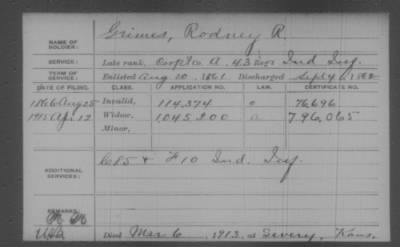 NAME OF SOLDIER: Grimes, Rodney R.
SERVICE: Late rank, Corpl Co. A. 43 Reg't Ind Inf.
TERM OF SERVICE: Enlisted Aug 10, 1861 Discharged Sept 4, 1862
DATE OF FILING. CLASS. APPLICATION NO. LAW. CERTIFICATE NO.
1866 Aug 25 Invalid, 114,374 76696
1915 Apr 12 Widow, 1,045,200 796,065
Minor,
ADDITIONAL SERVICES: C 85 & F 10 Ind. Inf.
REMARKS:
Died Mar 6, 1913, at Severy, Kans.